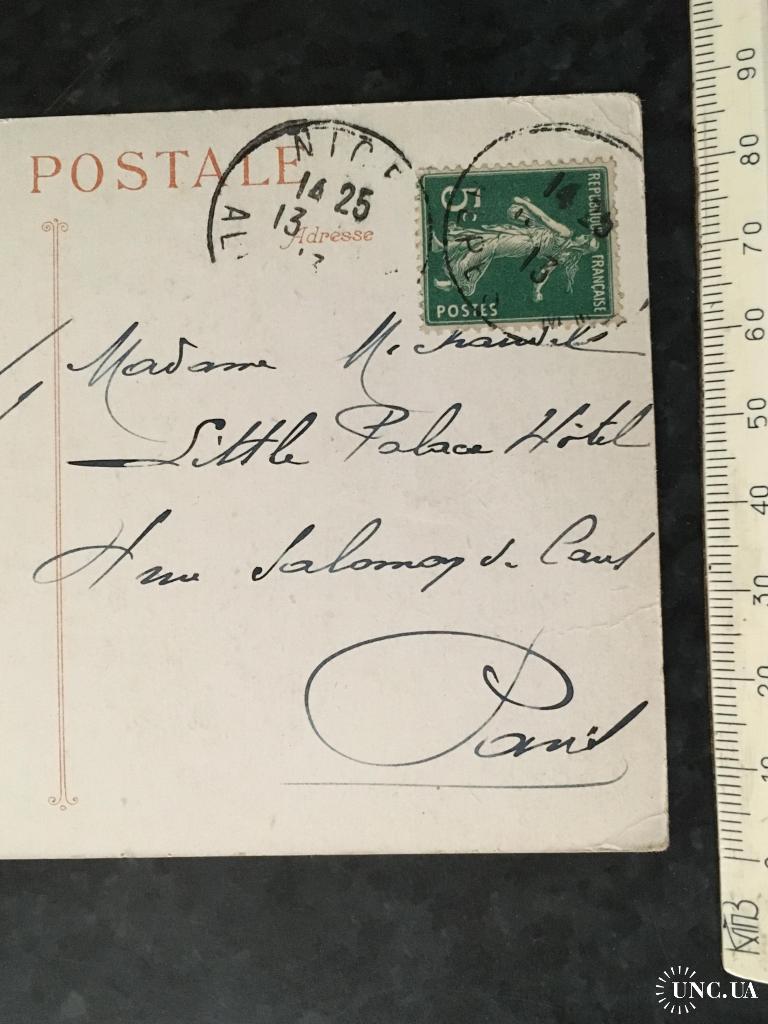 POSTALE
Adresse
NICE
14 25
13
AL
5c
REPUBLIQUE FRANÇAISE
POSTES
14 25
13
Madame
Little Palace Hôtel
4 rue Salomon de Caus
Paris
90
80
70
60
50
40
30
20
10
0
КТПЗ
UNC.UA